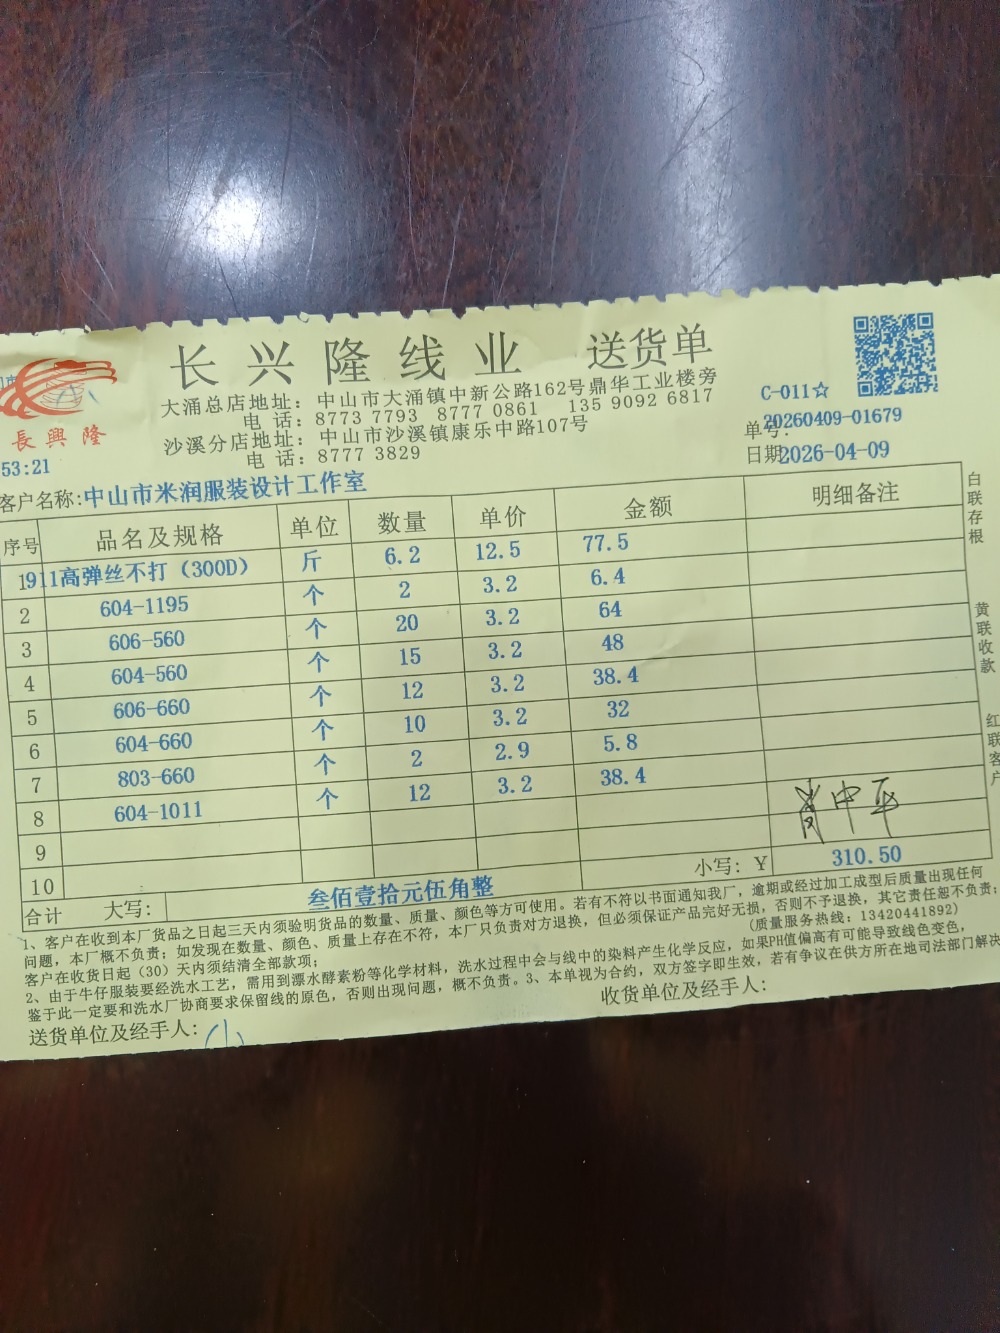 长兴隆线业 送货单
大涌总店地址：中山市大涌镇中新公路162号鼎华工业楼旁
电 话：8773 7793 8777 0861 135 9092 6817
沙溪分店地址：中山市沙溪镇康乐中路107号
电 话：8777 3829
長興隆
C-011☆
单号:20260409-01679
日期2026-04-09
53:21
客户名称:中山市米润服装设计工作室
序号 品名及规格 单位 数量 单价 金额 明细备注
1 911高弹丝不打（300D） 斤 6.2 12.5 77.5
2 604-1195 个 2 3.2 6.4
3 606-560 个 20 3.2 64
4 604-560 个 15 3.2 48
5 606-660 个 12 3.2 38.4
6 604-660 个 10 3.2 32
7 803-660 个 2 2.9 5.8
8 604-1011 个 12 3.2 38.4
9
10
合计 大写: 叁佰壹拾元伍角整 小写: Y 310.50
白联存根
黄联收款
红联客户
1、客户在收到本厂货品之日起三天内须验明货品的数量、质量、颜色等方可使用。若有不符以书面通知我厂，逾期或经过加工成型后质量出现任何
问题，本厂概不负责；如发现在数量、颜色、质量上存在不符，本厂只负责对方退换，但必须保证产品完好无损，否则不予退换，其它责任恕不负责；
客户在收货日起（30）天内须结清全部款项； (质量服务热线: 13420441892)
2、由于牛仔服装要经洗水工艺，需用到漂水酵素粉等化学材料，洗水过程中会与线中的染料产生化学反应，如果PH值偏高有可能导致线色变色，
鉴于此一定要和洗水厂协商要求保留线的原色，否则出现问题，概不负责。3、本单视为合约，双方签字即生效，若有争议在供方所在地司法部门解决
送货单位及经手人: 收货单位及经手人: